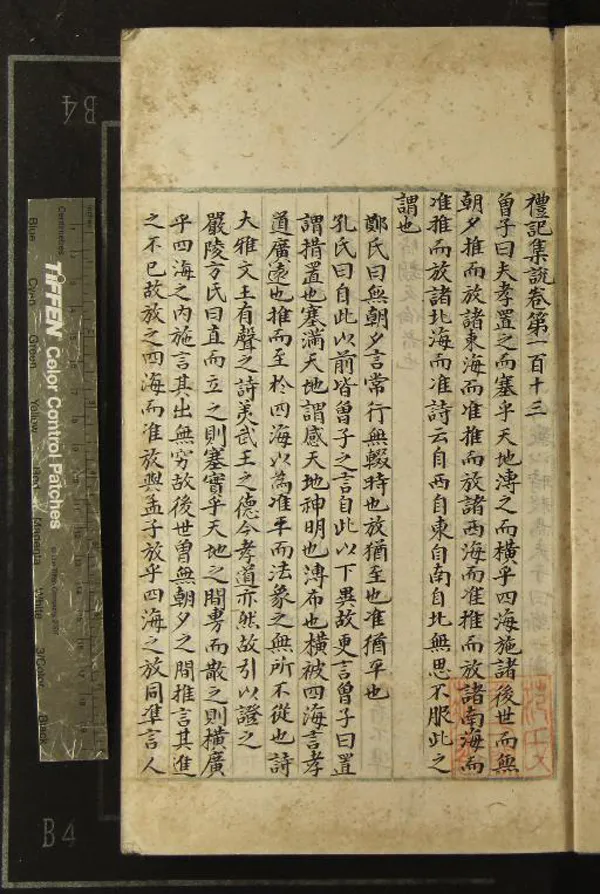 禮記集說卷第一百十三
曾子曰夫孝置之而塞乎天地溥之而橫乎四海施諸後世而無
朝夕推而放諸東海而准推而放諸西海而准推而放諸南海而
准推而放諸北海而准詩云自西自東自南自北無思不服此之
謂也
鄭氏曰無朝夕言常行無輟時也放猶至也准猶平也
孔氏曰自此以前皆曾子之言自此以下異故更言曾子曰置
謂措置也塞滿天地謂感天地神明也溥布也橫被四海言孝
道廣遠也推而至於四海以為准平而法象之無所不從也詩
大雅文王有聲之詩美武王之德今孝道亦然故引以證之
嚴陵方氏曰直而立之則塞實乎天地之間旉而散之則橫廣
乎四海之內施言其出無窮故後世曾無朝夕之間推言其進
之不已故放之四海而准放與孟子放乎四海之放同準言人
B4
B4
TIFFEN Color Control Patches
Blue
Green
Yellow
Magenta
White
3/Color
Black